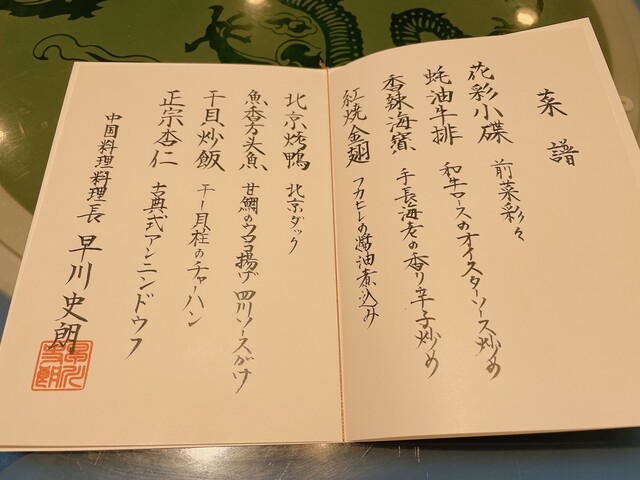 菜譜
花彩小碟 前菜彩々
蚝油牛排 和牛ロースのオイスターソース炒め
香辣海寶 手長海老の香り辛子炒め
紅焼金翅 フカヒレの醤油煮込み
北京烤鴨 北京ダック
魚香方头魚 甘鯛のウロコ揚げ 四川ソースがけ
干貝炒飯 干し貝柱のチャーハン
正宗杏仁 古典式アンニンドウフ
中国料理料理長 早川史朗